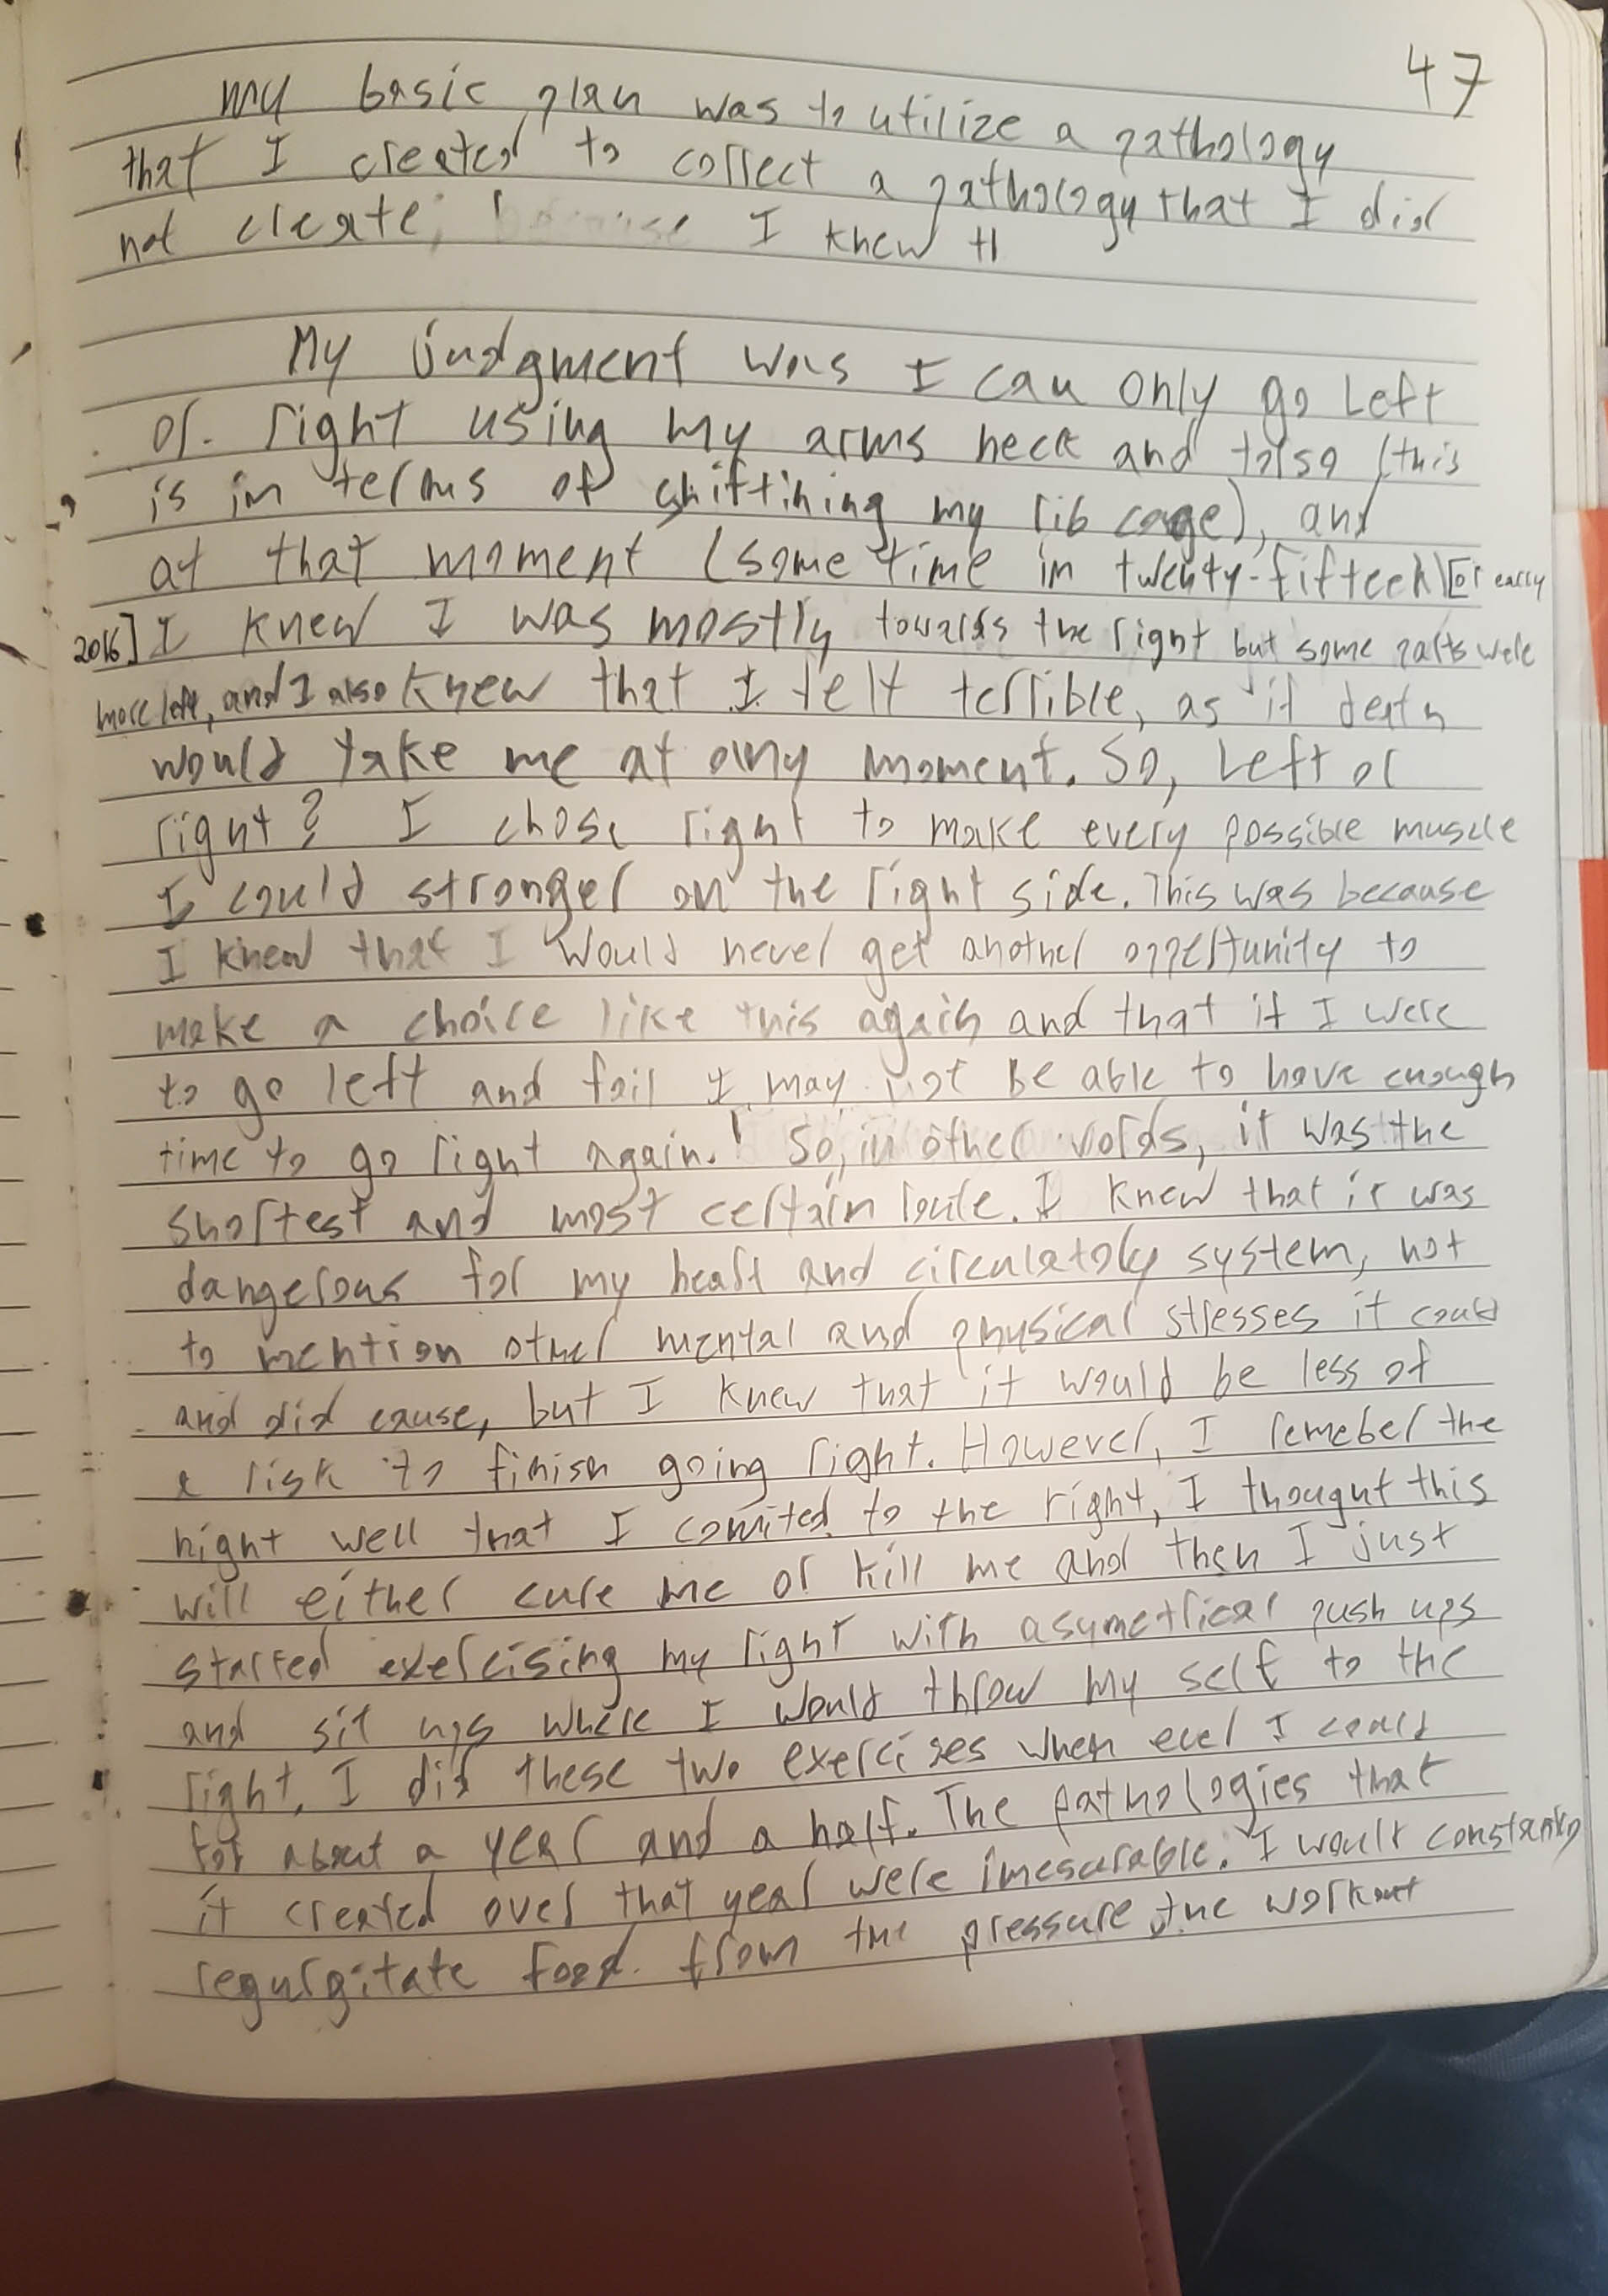 47
my basic plan was to utilize a pathology
that I created to correct a pathology that I did
not create; because I knew th
My judgment was I can only go left
or right using my arms neck and torso (this
is in terms of shiftining my rib cage), and
at that moment (some time in twenty-fifteen) [or early
2016] I knew I was mostly towards the right but some parts were
more left, and I also knew that I felt terrible, as if death
would take me at any moment. So, left or
right? I chose right to make every possible muscle
I could stronger on the right side. This was because
I knew that I would never get another oppertunity to
make a choice like this again and that if I were
to go left and fail I may not be able to have enough
time to go right again. So, in other words, it was the
shortest and most certain route. I knew that it was
dangerous for my heart and circulatory system, not
to mention other mental and physical stresses it could
and did cause, but I knew that it would be less of
a risk to finish going right. However, I remeber the
night well that I comited to the right, I thought this
will either cure me or kill me and then I just
started exercising my right with asymetrical push ups
and sit ups where I would throw my self to the
right. I did these two exercises when ever I could
for about a year and a half. The pathologies that
it created over that year were imesurable. I would constantly
regurgitate food from the pressure the workout